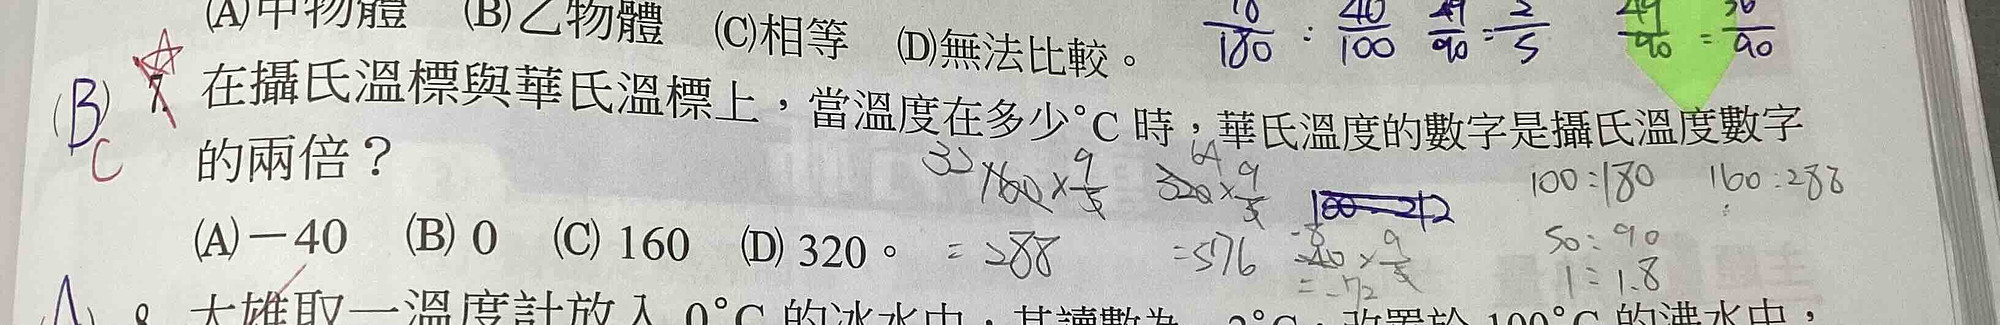 (A)甲物體 (B)乙物體 (C)相等 (D)無法比較。 10/180 : 40/100 49/90 = 2/5 49/90 = 36/90
(B) C 7. 在攝氏溫標與華氏溫標上，當溫度在多少°C 時，華氏溫度的數字是攝氏溫度數字
的兩倍？ 32 160 × 9/5 64 320 × 9/5 100-212 100:180 160:288
(A)－40 (B) 0 (C) 160 (D) 320。 = 288 = 576 -8 -40 × 9/5 = -72 50:90 1:1.8
A) 8. 大雄取一溫度計放入 0°C 的冰水中，其讀數為 －2°C，改置於 100°C 的沸水中，